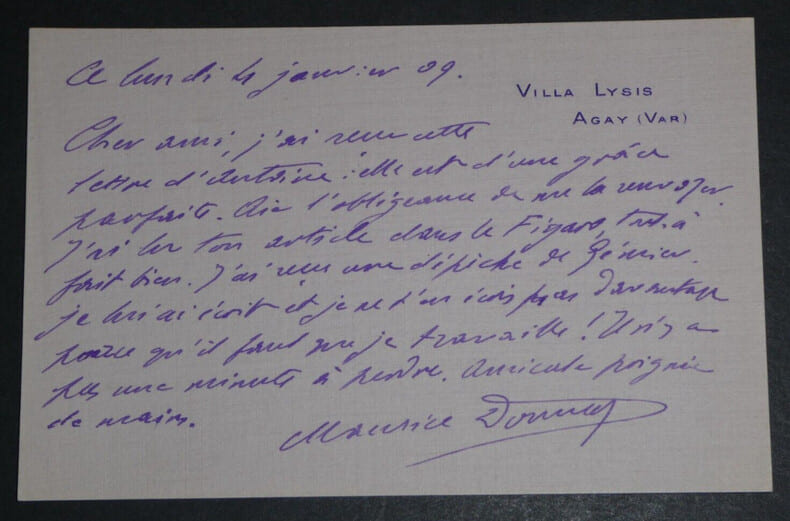 Ce lundi 4 janvier 09.
VILLA LYSIS
AGAY (VAR)
Cher ami, j'ai reçu cette
lettre d'Antoine : elle est d'une grâce
parfaite. Aie l'obligeance de me la renvoyer.
J'ai lu ton article dans le Figaro, tout à
fait bien. J'ai reçu une dépêche de Gémier.
je lui ai écrit et je ne t'en écris pas davantage
parce qu'il faut que je travaille ! Il n'y a
pas une minute à perdre. Amicale poignée
de main.
Maurice Donnay